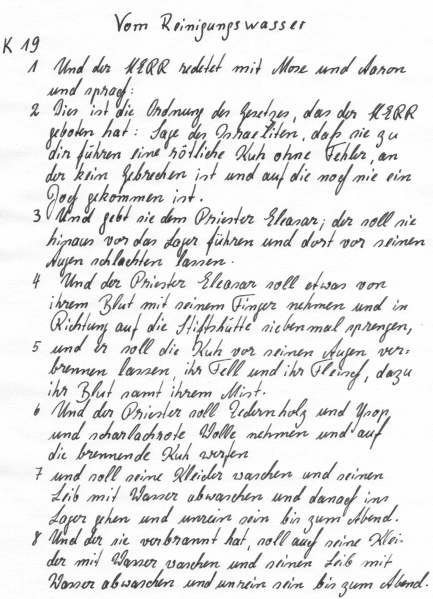 Vom Reinigungswasser
K 19
1 Und der HERR redetet mit Mose und Aaron
und sprach:
2 Dies ist die Ordnung des Gesetzes, das der HERR
geboten hat: Sage des Israeliten, daß sie zu
dir führen eine rötliche Kuh ohne Fehler, an
der kein Gebrechen ist und auf die noch nie ein
Joch gekommen ist.
3 Und gebt sie dem Priester Eleasar; der soll sie
hinaus vor das Lager führen und dort vor seinen
Augen schlachten lassen.
4 Und der Priester Eleasar soll etwas von
ihrem Blut mit seinem Finger nehmen und in
Richtung auf die Stiftshütte siebenmal sprengen,
5 und er soll die Kuh vor seinen Augen ver-
brennen lassen, ihr Fell und ihr Fleisch, dazu
ihr Blut samt ihrem Mist.
6 Und der Priester soll Zedernholz und Ysop
und scharlachrote Wolle nehmen und auf
die brennende Kuh werfen
7 und soll seine Kleider waschen und seinen
Leib mit Wasser abwaschen und danach ins
Lager gehen und unrein sein bis zum Abend.
8 Und der sie verbrannt hat, soll auch seine Klei-
der mit Wasser waschen und seinen Leib mit
Wasser abwaschen und unrein sein bis zum Abend.